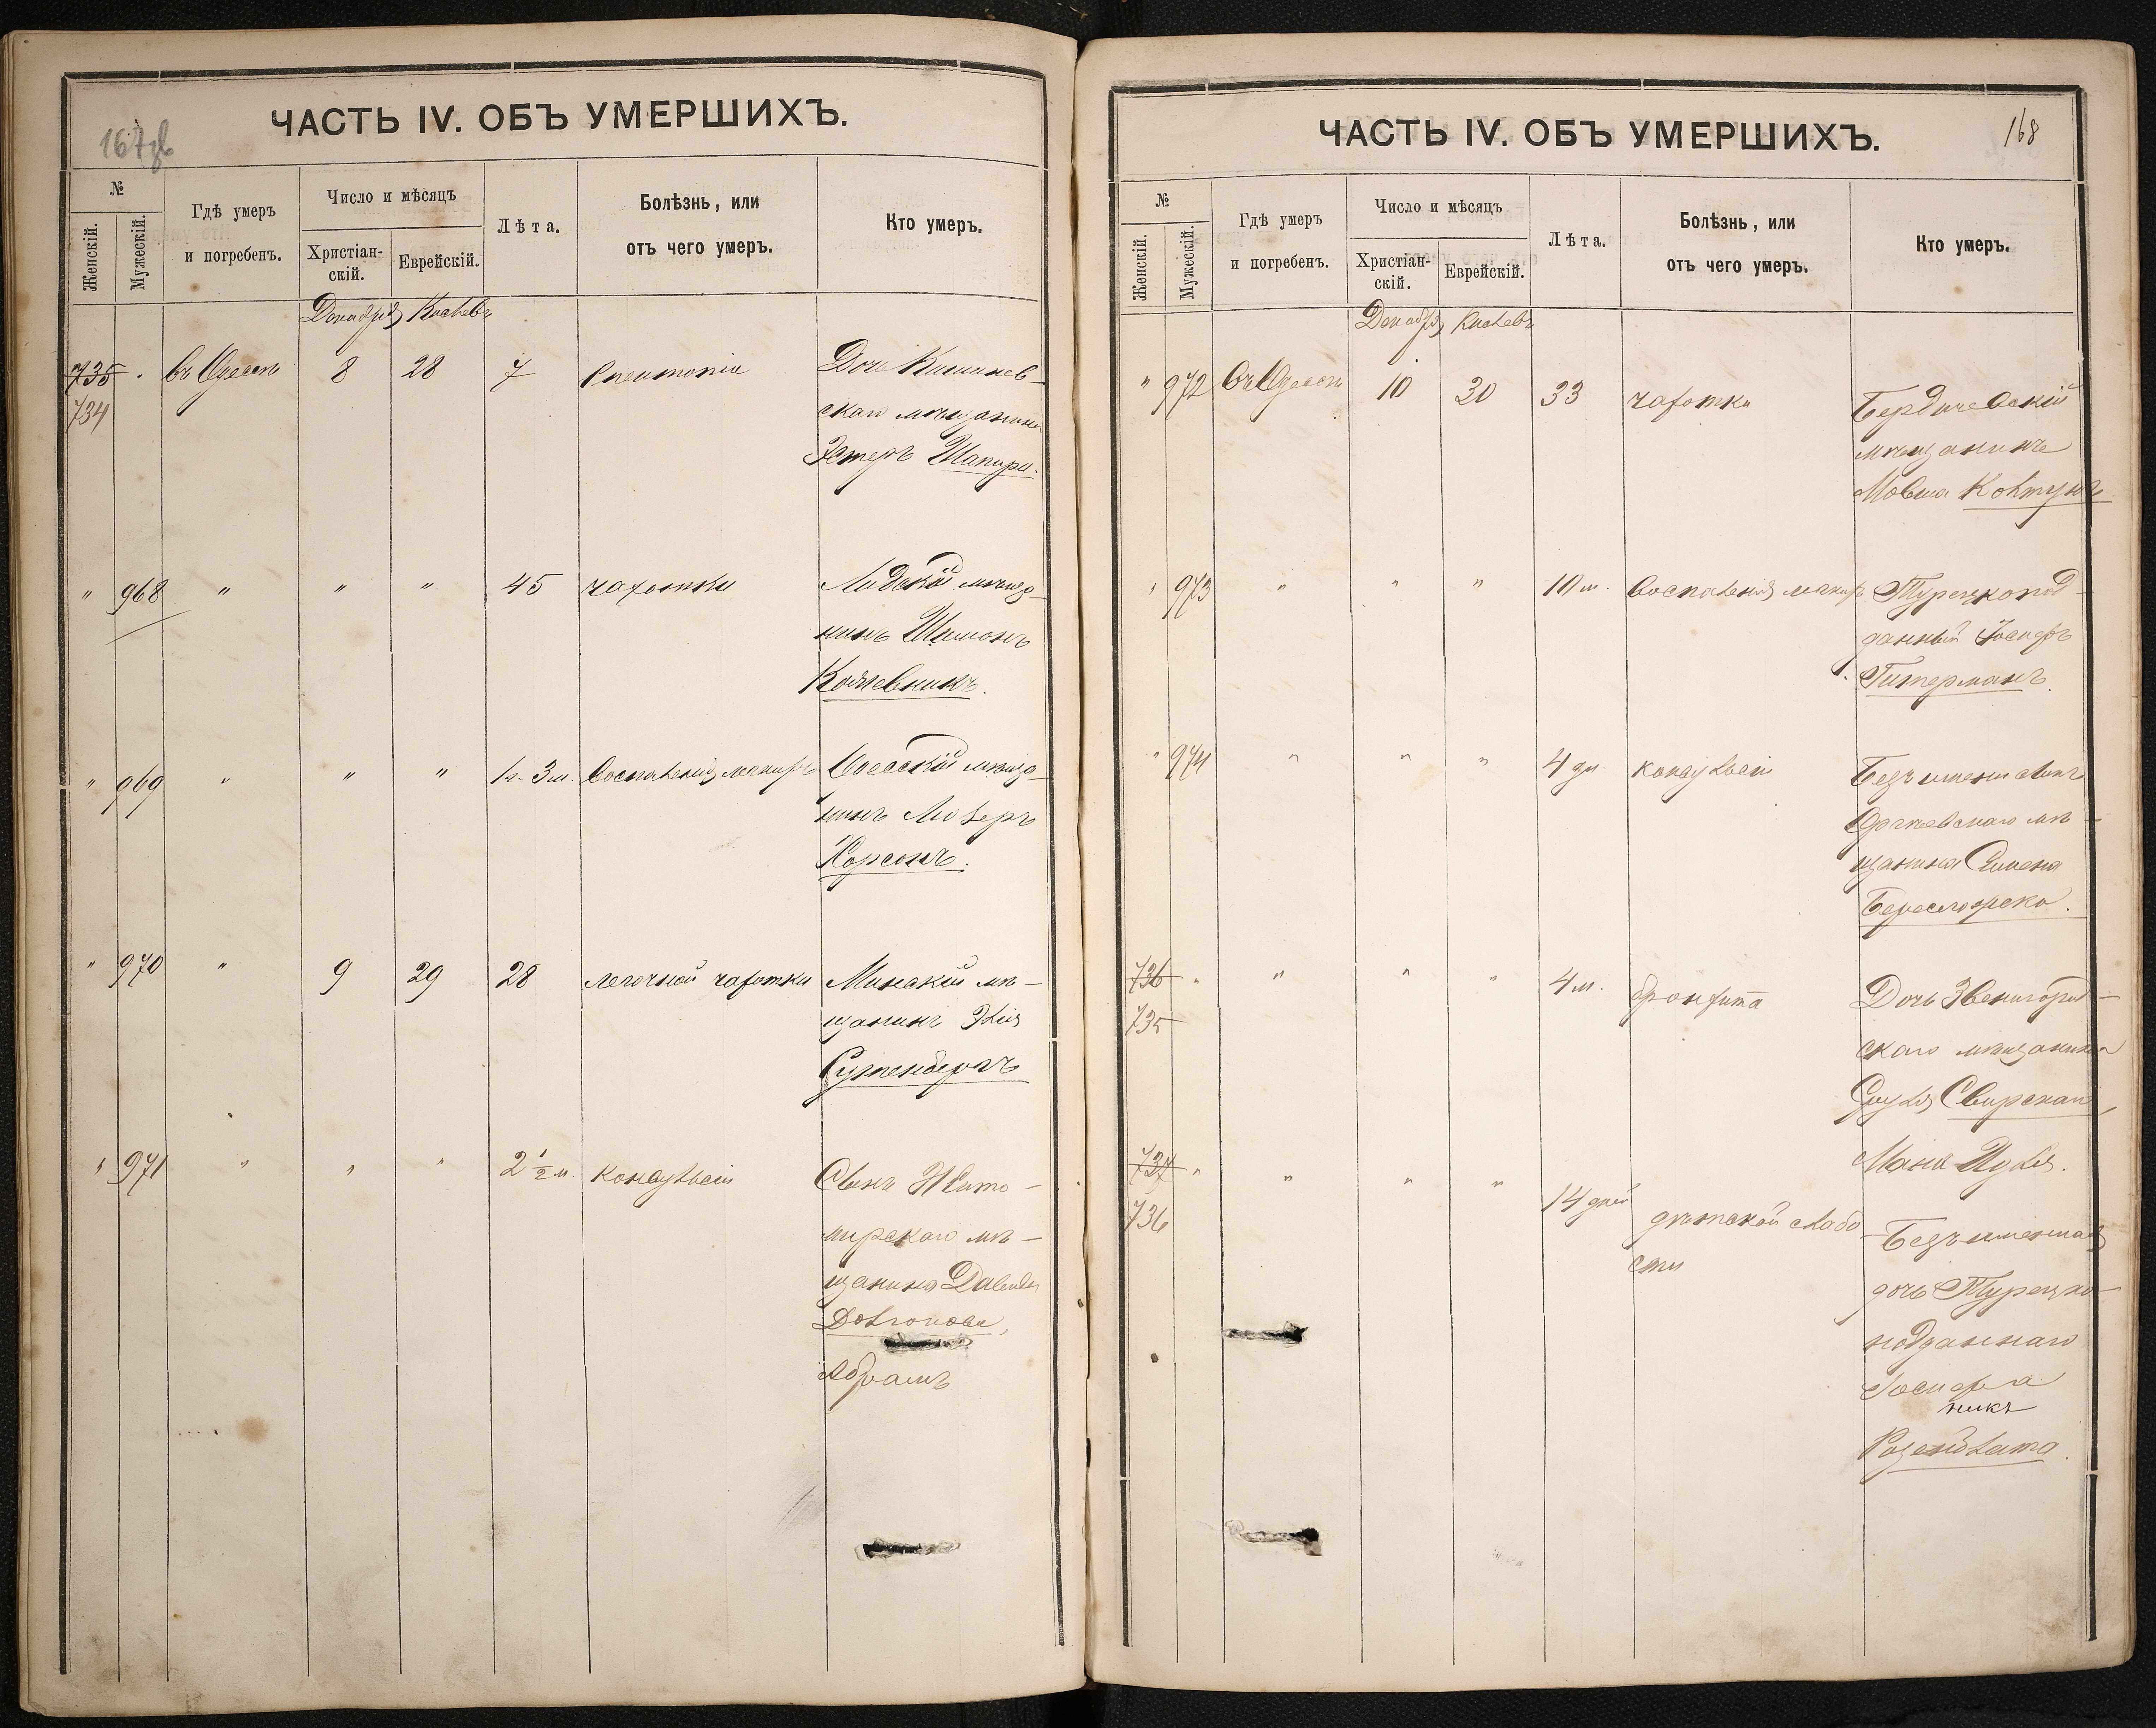 ЧАСТЬ IV. ОБЪ УМЕРШИХЪ.
167
№
Женскій.
Мужескій.
Гдѣ умеръ
и погребенъ.
Число и мѣсяцъ
Христіан-
скій.
Еврейскій.
Лѣта.
Болѣзнь, или
отъ чего умеръ.
Кто умеръ.
Декабря Кислевъ
735 въ Одессѣ 8 28 7 Pneumonia Дочь Кишинев-
734 скаго мѣщанина
Эстеръ Шапира.
" 968 " " " 45 чахотки Лидскій мѣща-
нинъ Шимонъ
Кожевникъ.
" 969 " " " 1 г. 3 м. Воспаленія Одесскій мѣща-
нинъ Лейзеръ
Хорсонъ.
" 970 " 9 29 28 легочной чахотки Минскій мѣ-
щанинъ Элія
" 971 " " " 2 1/2 м. конвульсіи Сынъ Жито-
мирскаго мѣ-
щанина Давида
Абрамъ
ЧАСТЬ IV. ОБЪ УМЕРШИХЪ.
168
№
Женскій.
Мужескій.
Гдѣ умеръ
и погребенъ.
Число и мѣсяцъ
Христіан-
скій.
Еврейскій.
Лѣта.
Болѣзнь, или
отъ чего умеръ.
Кто умеръ.
Декабря Кислевъ
" 972 въ Одессѣ 10 30 33 чахотки Бердичевскій
мѣщанинъ
Мовша Ковтунъ
" 973 " " " 10 м. Воспаленія Турецкопод-
данный Іосифъ
Гитерманъ.
" 974 " " " 4 дн. конвульсіи Безъимени сынъ
мѣ-
щанина Симона
736 " " " " 4 м. бронхита Дочь Звенигород-
735 скаго мѣщанина
Свирская,
737 " " " " 14 дней дѣтской слабо-
736 сти Безъименная
дочь Турецко-
подданнаго
Іосифа
никъ
Розенблата.